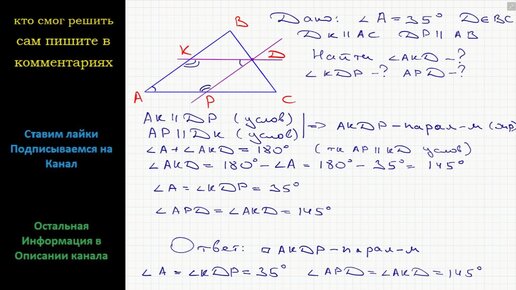 кто смог решить
сам пишите в
комментариях
Ставим лайки
Подписываемся на
Канал
Остальная
Информация в
Описании канала
B
K
D
A
P
C
Дано: ∠A = 35° D∈BC
DK∥AC DP∥AB
Найти ∠AKD - ?
∠KDP - ? APD - ?
AK∥DP (услов)
AP∥DK (услов) | => AKDP - парал-м (пр)
∠A + ∠AKD = 180° (тк AP∥KD услов)
∠AKD = 180° - ∠A = 180° - 35° = 145°
∠A = ∠KDP = 35°
∠APD = ∠AKD = 145°
Ответ: ▱ AKDP - парал-м
∠A = ∠KDP = 35° ∠APD = ∠AKD = 145°